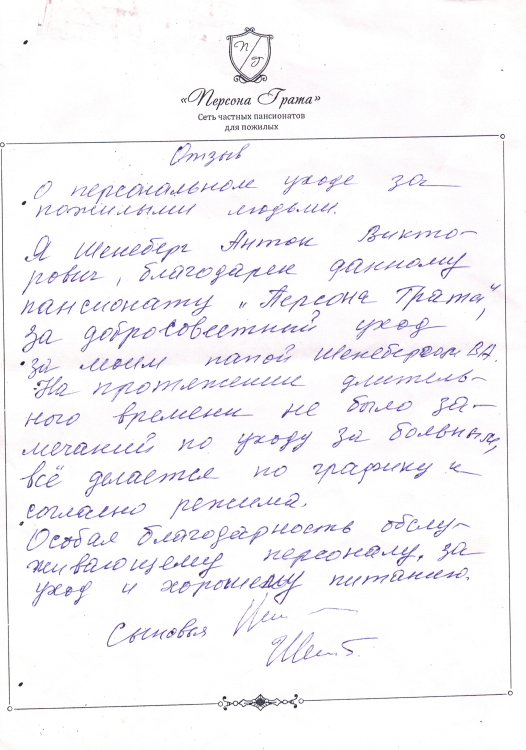 П
Г
«Персона Грата»
Сеть частных пансионатов
для пожилых
Отзыв
О персональном уходе за
пожилыми людьми.
Я Шенеберг Антон Викто-
рович, благодарен данному
пансионату „Персона Грата",
за добросовестний уход
за моим папой Шенебергом В.А.
На протяжении длитель-
ного времени не было за-
мечаний по уходу за больным,
всё делается по графику и
согласно режима.
Особая благодарность обслу-
живающему персоналу, за
уход и хорошему питанию.
Сыновья